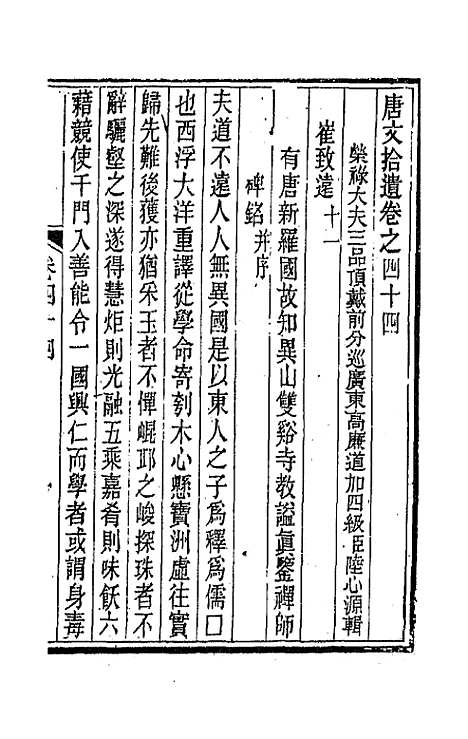 唐文拾遺卷之四十四
榮祿大夫三品頂戴前分巡廣東高廉道加四級臣陸心源輯
崔致遠十一
有唐新羅國故知異山雙谿寺教謚真鑒禪師
碑銘并序
夫道不遠人人無異國是以東人之子為釋為儒囗
也西浮大洋重譯從學命寄刳木心懸寶洲虛往實
歸先難後獲亦猶采玉者不憚崐邱之峻探珠者不
辭驪壑之深遂得慧炬則光融五乘嘉肴則味飫六
藉競使千門入善能令一國興仁而學者或謂身毒
卷四十四